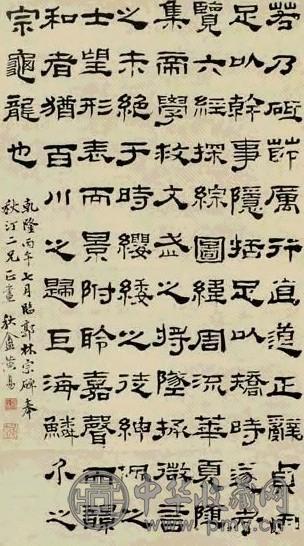 若乃砥節厲行直道正辭貞固
足以幹事隱括足以矯時遂考
覽六經探綜圖緯周流華夏隨
集帝學救文武之將墜拯微言
之未絕于時纓緌之徒紳佩之
士望形表而景附聆嘉聲而響
和者猶百川之歸巨海鱗介之
宗龜龍也
乾隆丙午七月臨郭林宗碑奉
秋汀二兄正 秋盦黃易
中华收藏网